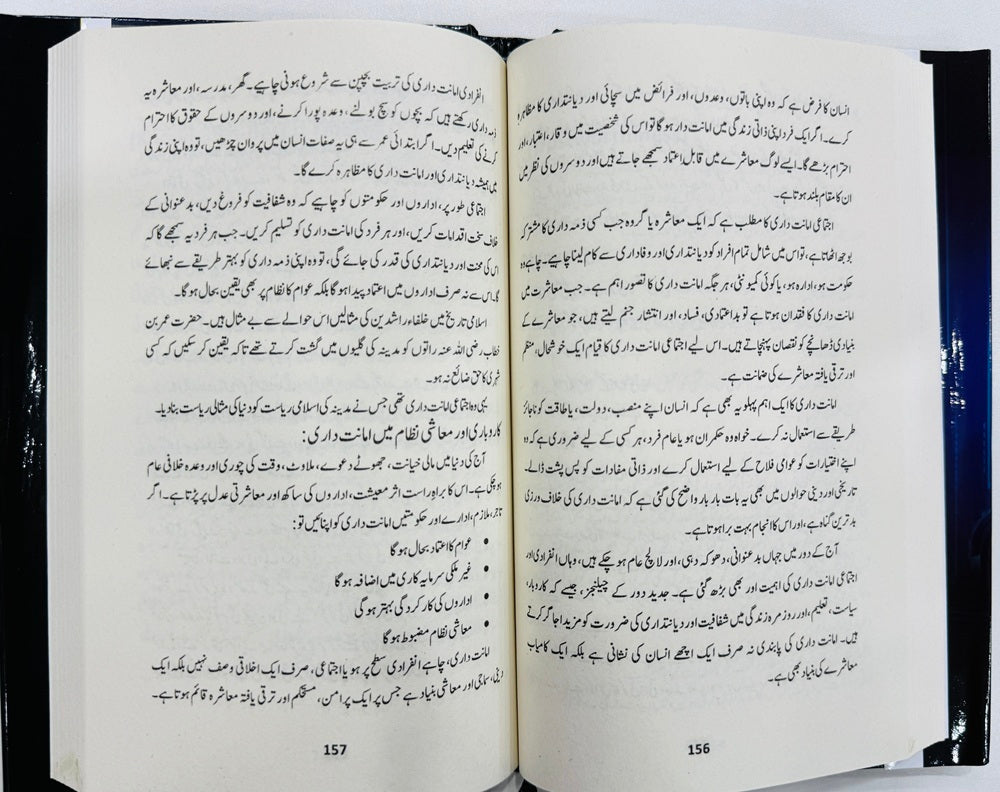 انسان کا فرض ہے کہ وہ اپنی باتوں، وعدوں، اور فرائض میں سچائی اور دیانتداری کا مظاہرہ
کرے۔ اگر ایک فرد اپنی ذاتی زندگی میں امانت دار ہوگا تو اس کی شخصیت میں وقار، اعتبار، اور
احترام بڑھے گا۔ ایسے لوگ معاشرے میں قابل اعتماد سمجھے جاتے ہیں اور دوسروں کی نظر میں
ان کا مقام بلند ہوتا ہے۔
اجتماعی امانت داری کا مطلب ہے کہ ایک معاشرہ یا گروہ جب کسی ذمہ داری کا مشترکہ
بوجھ اٹھاتا ہے، تو اس میں شامل تمام افراد کو دیانتداری اور وفاداری سے کام لینا چاہیے۔ چاہے وہ
حکومت ہو، ادارہ ہو، یا کوئی کمیونٹی، ہر جگہ امانت داری کا تصور اہم ہے۔ جب معاشرت میں
امانت داری کا فقدان ہوتا ہے تو بداعتمادی، فساد، اور انتشار جنم لیتے ہیں، جو معاشرے کے
بنیادی ڈھانچے کو نقصان پہنچاتے ہیں۔ اس لیے اجتماعی امانت داری کا قیام ایک خوشحال، منظم
اور ترقی یافتہ معاشرے کی ضمانت ہے۔
امانت داری کا ایک اہم پہلو یہ بھی ہے کہ انسان اپنے منصب، دولت، یا طاقت کو ناجائز
طریقے سے استعمال نہ کرے۔ خواہ وہ حکمران ہو یا عام فرد، ہر کسی کے لیے ضروری ہے کہ وہ
اپنے اختیارات کو عوامی فلاح کے لیے استعمال کرے اور ذاتی مفادات کو پس پشت ڈالے۔
تاریخی اور دینی حوالوں میں بھی یہ بات بار بار واضح کی گئی ہے کہ امانت داری کی خلاف ورزی
بدترین گناہ ہے، اور اس کا انجام بہت برا ہوتا ہے۔
آج کے دور میں جہاں بدعنوانی، دھوکہ دہی، اور لالچ عام ہو چکے ہیں، وہاں انفرادی اور
اجتماعی امانت داری کی اہمیت اور بھی بڑھ گئی ہے۔ جدید دور کے چیلنجز، جیسے کہ کاروبار،
سیاست، تعلیم، اور روزمرہ زندگی میں شفافیت اور دیانتداری کی ضرورت کو مزید اجاگر کرتے
ہیں۔ امانت داری کی پابندی نہ صرف ایک اچھے انسان کی نشانی ہے بلکہ ایک کامیاب
معاشرے کی بنیاد بھی ہے۔
156
انفرادی امانت داری کی تربیت بچپن سے شروع ہونی چاہیے۔ گھر، مدرسہ، اور معاشرہ یہ
ذمہ داری رکھتے ہیں کہ بچوں کو سچ بولنے، وعدہ پورا کرنے، اور دوسروں کے حقوق کا احترام
کرنے کی تعلیم دیں۔ اگر ابتدائی عمر سے ہی یہ صفات انسان میں پروان چڑھیں، تو وہ اپنی زندگی
میں ہمیشہ دیانتداری اور امانت داری کا مظاہرہ کرے گا۔
اجتماعی طور پر، اداروں اور حکومتوں کو چاہیے کہ وہ شفافیت کو فروغ دیں، بدعنوانی کے
خلاف سخت اقدامات کریں، اور ہر فرد کی امانت داری کو تسلیم کریں۔ جب ہر فرد یہ سمجھے گا کہ
اس کی محنت اور دیانتداری کی قدر کی جائے گی، تو وہ اپنی ذمہ داری کو بہتر طریقے سے نبھائے
گا۔ اس سے نہ صرف اداروں میں اعتماد پیدا ہوگا بلکہ عوام کا نظام پر بھی یقین بحال ہوگا۔
اسلامی تاریخ میں خلفاء راشدین کی مثالیں اس حوالے سے بے مثال ہیں۔ حضرت عمر بن
خطاب رضی اللہ عنہ راتوں کو مدینہ کی گلیوں میں گشت کرتے تھے تاکہ یقین کر سکیں کہ کسی
شہری کا حق ضائع نہ ہو۔
یہی وہ اجتماعی امانت داری تھی جس نے مدینہ کی اسلامی ریاست کو دنیا کی مثالی ریاست بنا دیا۔
کاروباری اور معاشی نظام میں امانت داری:
آج کی دنیا میں مالی خیانت، جھوٹے دعوے، ملاوٹ، وقت کی چوری اور وعدہ خلافی عام
ہو چکی ہے۔ اس کا براہِ راست اثر معیشت، اداروں کی ساکھ اور معاشرتی عدل پر پڑتا ہے۔ اگر
تاجر، ملازم، ادارے اور حکومتیں امانت داری کو اپنائیں تو:
• عوام کا اعتماد بحال ہوگا
• غیر ملکی سرمایہ کاری میں اضافہ ہوگا
• اداروں کی کارکردگی بہتر ہوگی
• معاشی نظام مضبوط ہوگا
امانت داری، چاہے انفرادی سطح پر ہو یا اجتماعی، صرف ایک اخلاقی وصف نہیں بلکہ ایک
دینی، سماجی اور معاشی بنیاد ہے جس پر ایک پرامن، مستحکم اور ترقی یافتہ معاشرہ قائم ہوتا ہے۔
157